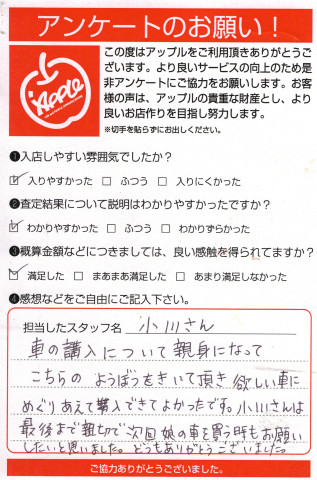 アンケートのお願い！
Apple
この度はアップルをご利用頂きありがとうご
ざいます。より良いサービスの向上のため是
非アンケートにご協力をお願いします。お客
様の声は、アップルの貴重な財産とし、より
良いお店作りを目指し努力します。
※切手を貼らずにお出しください。
❶入店しやすい雰囲気でしたか？
☑ 入りやすかった □ ふつう □ 入りにくかった
❷査定結果について説明はわかりやすかったですか？
☑ わかりやすかった □ ふつう □ わかりずらかった
❸概算金額などにつきましては、良い感触を得られてますか？
☑ 満足した □ まあまあ満足した □ あまり満足しなかった
❹感想などをご自由にご記入下さい。
担当したスタッフ名 小川さん
車の購入について親身になって
こちらの ようぼうをきいて頂き 欲しい車に
めぐりあえて購入できてよかったです。小川さんは
最後まで親切で次回娘の車を買う時もお願い
したいと思いました。どうもありがとうございました。
ご協力ありがとうございました。